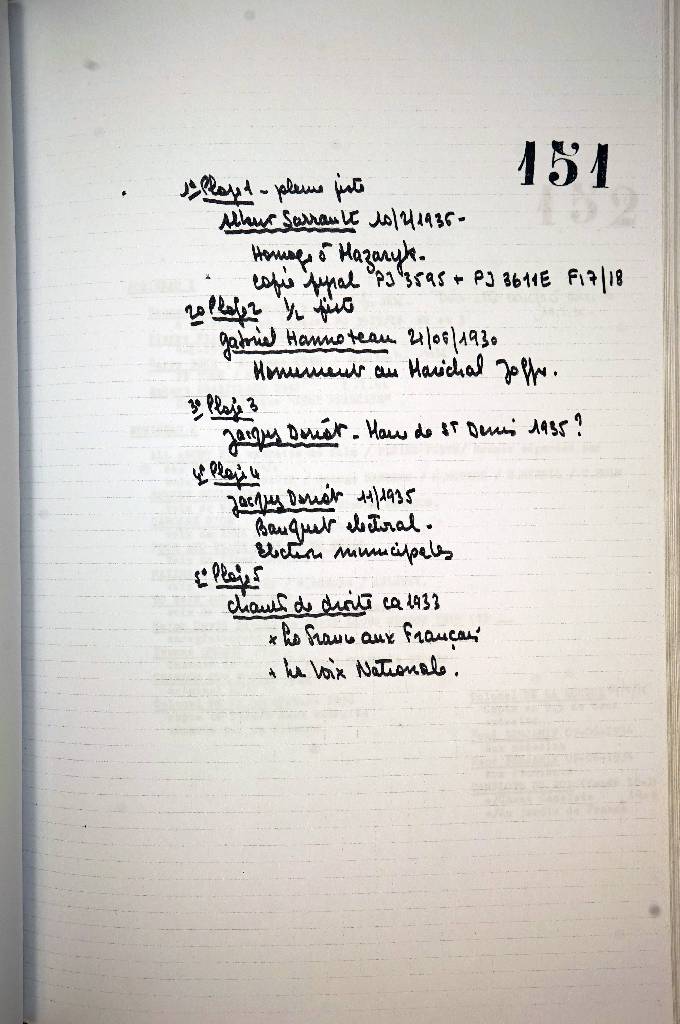 151
1º Plage 1 - pleine piste
Albert Sarrault 10/2/1936 -
Homage à Mazaryk.
copie PJ 3595 + PJ 3611E F17/18
2º Plage 2 ½ piste
Gabriel Hannoteau 21/06/1930
Monument au Maréchal Joffre.
3º Plage 3
Jacques Doriot - Maire de St Denis 1935 ?
4º Plage 4
Jacques Doriot 11/1935
Banquet electoral.
Election municipales
5º Plage 5
chants de droite ca 1933
x La France aux Français
+ La Voix Nationale.